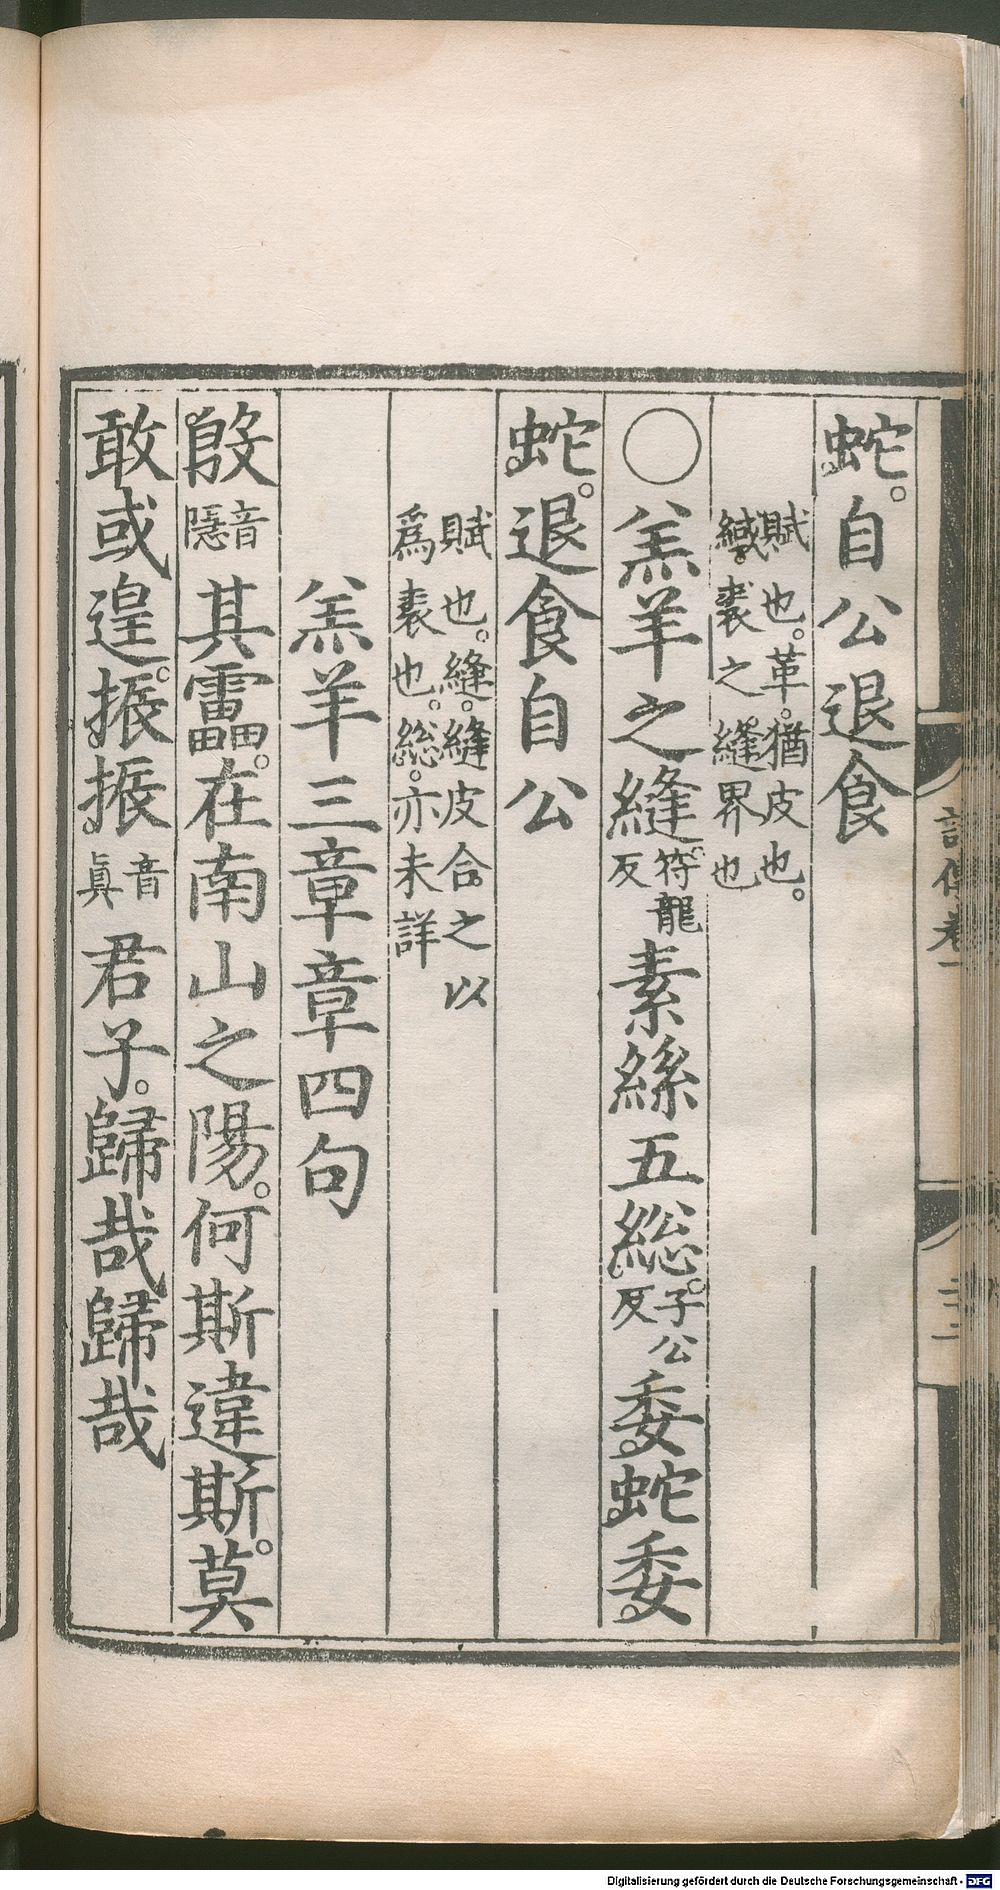 蛇。自公退食
賦也。革。猶皮也。
緎。裘之縫界也
○羔羊之縫。符龍反素絲五総。子公反委蛇委
蛇。退食自公
賦也。縫。縫皮合之以
爲裘也。総。亦未詳
羔羊三章章四句
殷音隱其靁。在南山之陽。何斯違斯。莫
敢或遑。振振音眞君子。歸哉歸哉
詩傳卷一
二十二
Digitalisierung gefördert durch die Deutsche Forschungsgemeinschaft - DFG